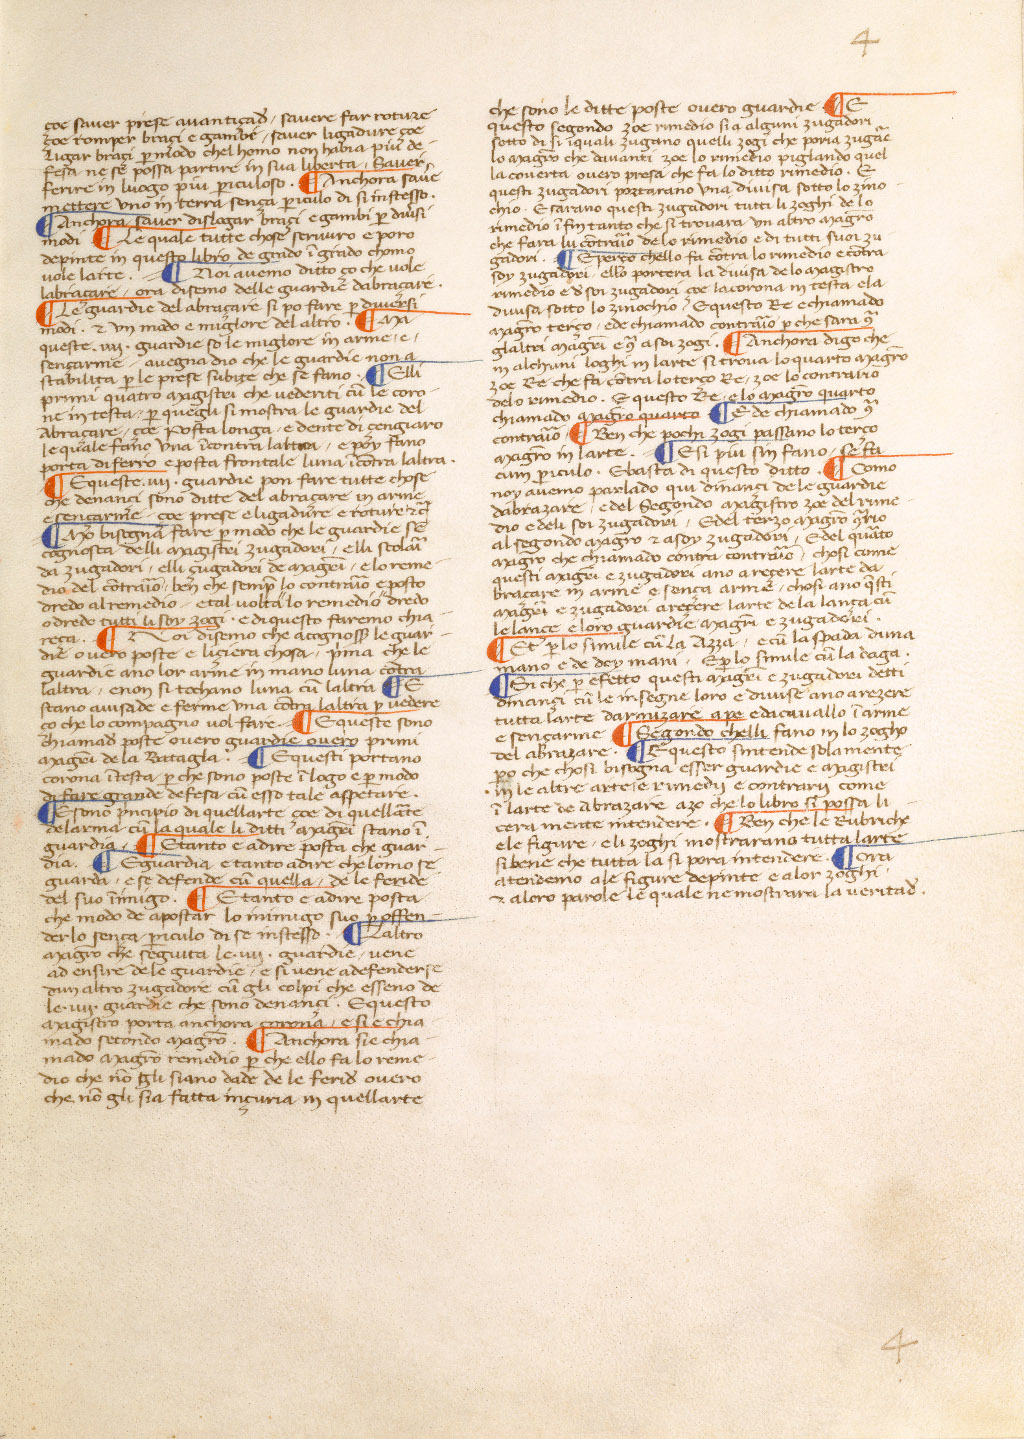 4
çoe saver prese avantiçade / savere far roture
çoe romper braçi e gambe / saver ligadure çoe
ligar braçi p modo chel homo non habia piu de-
fesa ne se possa partire in sua liberta / Saver
ferire in luogo piu piculoso . ¶ Anchora save
mettere uno in terra sença piculo di si instesso.
¶ Anchora saver dislogar braçi e gambi p divsi
modi ¶ Le quale tutte chose scrivro e poro
depinte in questo libro de grado ī grado chomo
vole larte . ¶ Noi avemo ditto ço che vole
labraçare / ora disemo delle guardie dabraçare.
¶ Le guardie del abraçare si po fare p diversi
modi . & un modo e miglore del altro . ¶ Ma
queste .iiij. guardie so le miglore in arme / e /
sençarme / avegna dio che le guardie non a
stabilita p le prese subite che se fano . ¶ Elli
primi quatro magistri che vederiti cū le coro
ne in testa / p quegli si mostra le guardie del
abraçare / çoe Posta longa / e dente di çengiaro
le quale fano una īcontra laltra / e poy fano
porta di ferro e posta frontale luna īcontra laltra .
¶ E queste .iiij. guardie pon fare tutte chose
che denanci sono ditte del abraçare in arme
e sençarme / çoe prese e ligadure e roture &c̄
¶ Mo bisogna fare p modo che le guardie se
cognosca delli magistri zugadori / elli scolari
da zugadori / elli çugadori de magri / e lo reme
dio del contrario / ben che semp lo contrario e posto
dredo al remedio / e tal volta lo remedio dredo
o dredo tutti li soy zogi . e di questo faremo chia
reça . ¶ Noi disemo che a cognoss le guar-
die overo poste e liçiera chosa / prima che le
guardie ano lor arme in mano luna contra
laltra / e non si tochano luna cū laltra ¶ E
stano avisade e ferme una contra laltra p vedere
ço che lo compagno vol fare . ¶ E queste sono
chiamade poste overo guardie overo primi
magri de la Batagla . ¶ E questi portano
corona ī testa / p che sono poste ī logo e p modo
di fare grande defesa cū esso tale aspetare .
¶ E sono principio di quellarte çoe di quellarte
delarma cū la quale li ditti magri stano ī
guardia . ¶ E tanto e a dire posta che guar
dia. ¶ E guardia e tanto a dire che lomo se
guarda / e se defende cū quella / de le feride
del suo īimigo . ¶ E tanto e a dire posta
che modo de apostar lo inimigo suo p offen-
derlo sença piculo di se instesso . ¶ Laltro
magro che seguita le .iiij. guardie / vene
ad ensire dele guardie / e si vene a defenderse
dun altro zugadore cū gli colpi che esseno de
le .iiij. guardie che sono denanci . E questo
magistro porta anchora corona / e si e chia
mado secondo magro . ¶ Anchora si e chia-
mado magro remedio p che ello fa lo reme-
dio che nō gli siano dade de le feride overo
che nō gli sia fatta inçuria in quellarte
che sono le ditte poste overo guardie . ¶ E
questo segondo zoe rimedio si a alguni zugadori
sotto di si ī quali zugano quelli zogi che poria zugare
lo magro che davanti zoe lo rimedio piglando quel
la coverta overo presa che fa lo ditto rimedio . E
questi zugadori portarano una divisa sotto lo zino-
chio . E farano questi zugadori tutti li zoghi de lo
rimedio ī fin tanto che si trovara un altro magro
che fara lu contrario de lo rimedio e di tutti suoi zu
gadori . ¶ E perço chello fa contra lo rimedio e contra
soy zugadori / ello portera la divisa de lo magistro
rimedio e de soi zugadori çoe la corona in testa e la
divisa sotto lo zinochio / E questo Re e chiamado
magro terço / ede chiamado contrario p che sara 9ͣ
glaltri magri e 9ͣ a soi zogi . ¶ Anchora digo che
in alchuni loghi in larte si trova lo quarto magro
zoe Re che fa contra lo terço Re / zoe lo contrario
delo rimedio . E questo Re / e lo magro quarto
chiamado magro quarto ¶ E de chiamado 9ͣ
contrario . ¶ Ben che pochi zogi passano lo terço
magro in larte . ¶ E si piu sin fano / se fa
cum piculo . E basta di questo ditto . ¶ Como
noy avemo parlado qui dinançi de le guardie
dabrazare / e del segondo magistro zoe del rime
dio e deli soi zugadori / E del terzo magro 9ͣrio
al segondo magro & a soy zugadori / E del quarto
magro che chiamado contra contrario / chosi come
questi magri e zugadori ano a reçere larte da
braçare in arme e sença arme / chosi ano q̄sti
magri e zugadori a reçere larte de la lança cū
le lance e loro guardie magri e zugadori .
¶ Et p lo simile cū la Azza / e cū la spada duna
mano e de doy mani / E p lo simile cū la daga .
¶ Si che p efetto questi magri e zugadori detti
dinançi cū le insegne loro e divise ano a rezere
tutta larte darmizare a pe e da cavallo ī arme
e sençarme ¶ Segondo chelli fano in lo zogho
del abrazare . ¶ E questo sintende solamente
pço che chosi bisogna esser guardie e magistri
in le altre arte / e rimedij e contrarij come
ī larte de Abrazare azo che lo libro si possa li
cera mente intendere . ¶ Ben che le Rubriche
e le figure / e li zoghi mostrarano tutta larte
sibene che tutta la si pora intendere . ¶ Ora
atendemo a le figure depinte e a lor zoghi /
& a loro parole le quale ne mostrara la veritade .
4